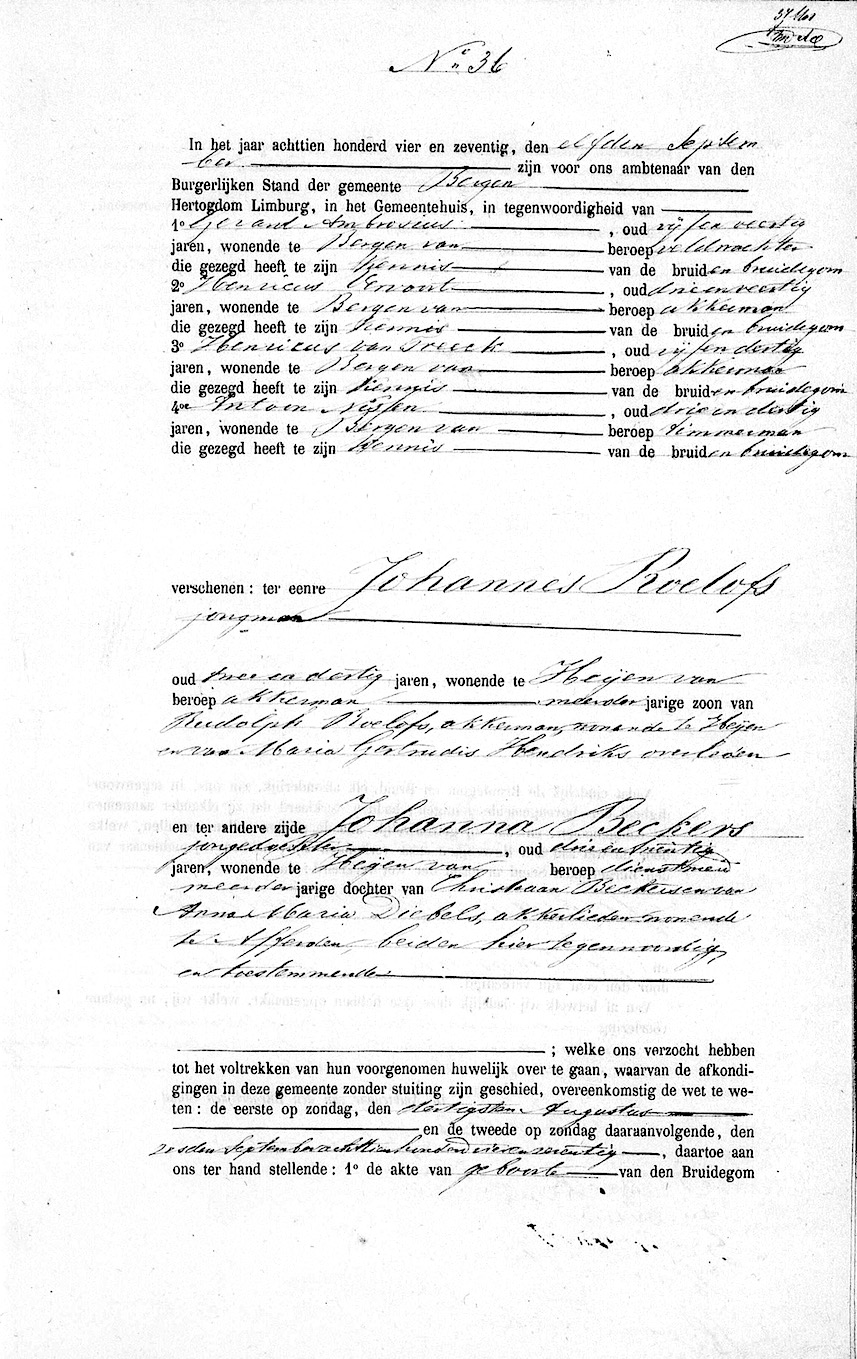 No 36
In het jaar achttien honderd vier en zeventig, den elfden Septem
ber zijn voor ons ambtenaar van den
Burgerlijken Stand der gemeente Bergen
Hertogdom Limburg, in het Gemeentehuis, in tegenwoordigheid van
1o Gerard Ambrosius, oud vijf en veertig
jaren, wonende te Bergen van beroep veldwachter
die gezegd heeft te zijn Kennis van de bruid en bruidegom
2o Henricus Vervoort, oud drie en veertig
jaren, wonende te Bergen van beroep akkerman
die gezegd heeft te zijn Kennis van de bruid en bruidegom
3o Henricus van Treeck, oud vijf en dertig
jaren, wonende te Bergen van beroep akkerman
die gezegd heeft te zijn Kennis van de bruid en bruidegom
4o Antoon Nissen, oud drie en dertig
jaren, wonende te Bergen van beroep timmerman
die gezegd heeft te zijn Kennis van de bruid en bruidegom
verschenen: ter eenre Johannes Roelofs
jongman
oud twee en dertig jaren, wonende te Heijen van
beroep akkerman meerder jarige zoon van
Rudolph Roelofs, akkerman, wonende te Heijen
en van Maria Gertrudis Hendriks overleden
en ter andere zijde Johanna Beckers
jongedochter, oud drie en twintig
jaren, wonende te Heijen van beroep dienstmeid
meerder jarige dochter van Christiaan Beckers en van
Anna Maria Diebels, akkerlieden wonende
te Afferden, beiden hier tegenwoordig,
en toestemmende
; welke ons verzocht hebben
tot het voltrekken van hun voorgenomen huwelijk over te gaan, waarvan de afkondi-
gingen in deze gemeente zonder stuiting zijn geschied, overeenkomstig de wet te we-
ten: de eerste op zondag, den dertigsten Augustus
en de tweede op zondag daaraanvolgende, den
zesden September achttienhonderd vier en zeventig, daartoe aan
ons ter hand stellende: 1o de akte van geboorte van den Bruidegom